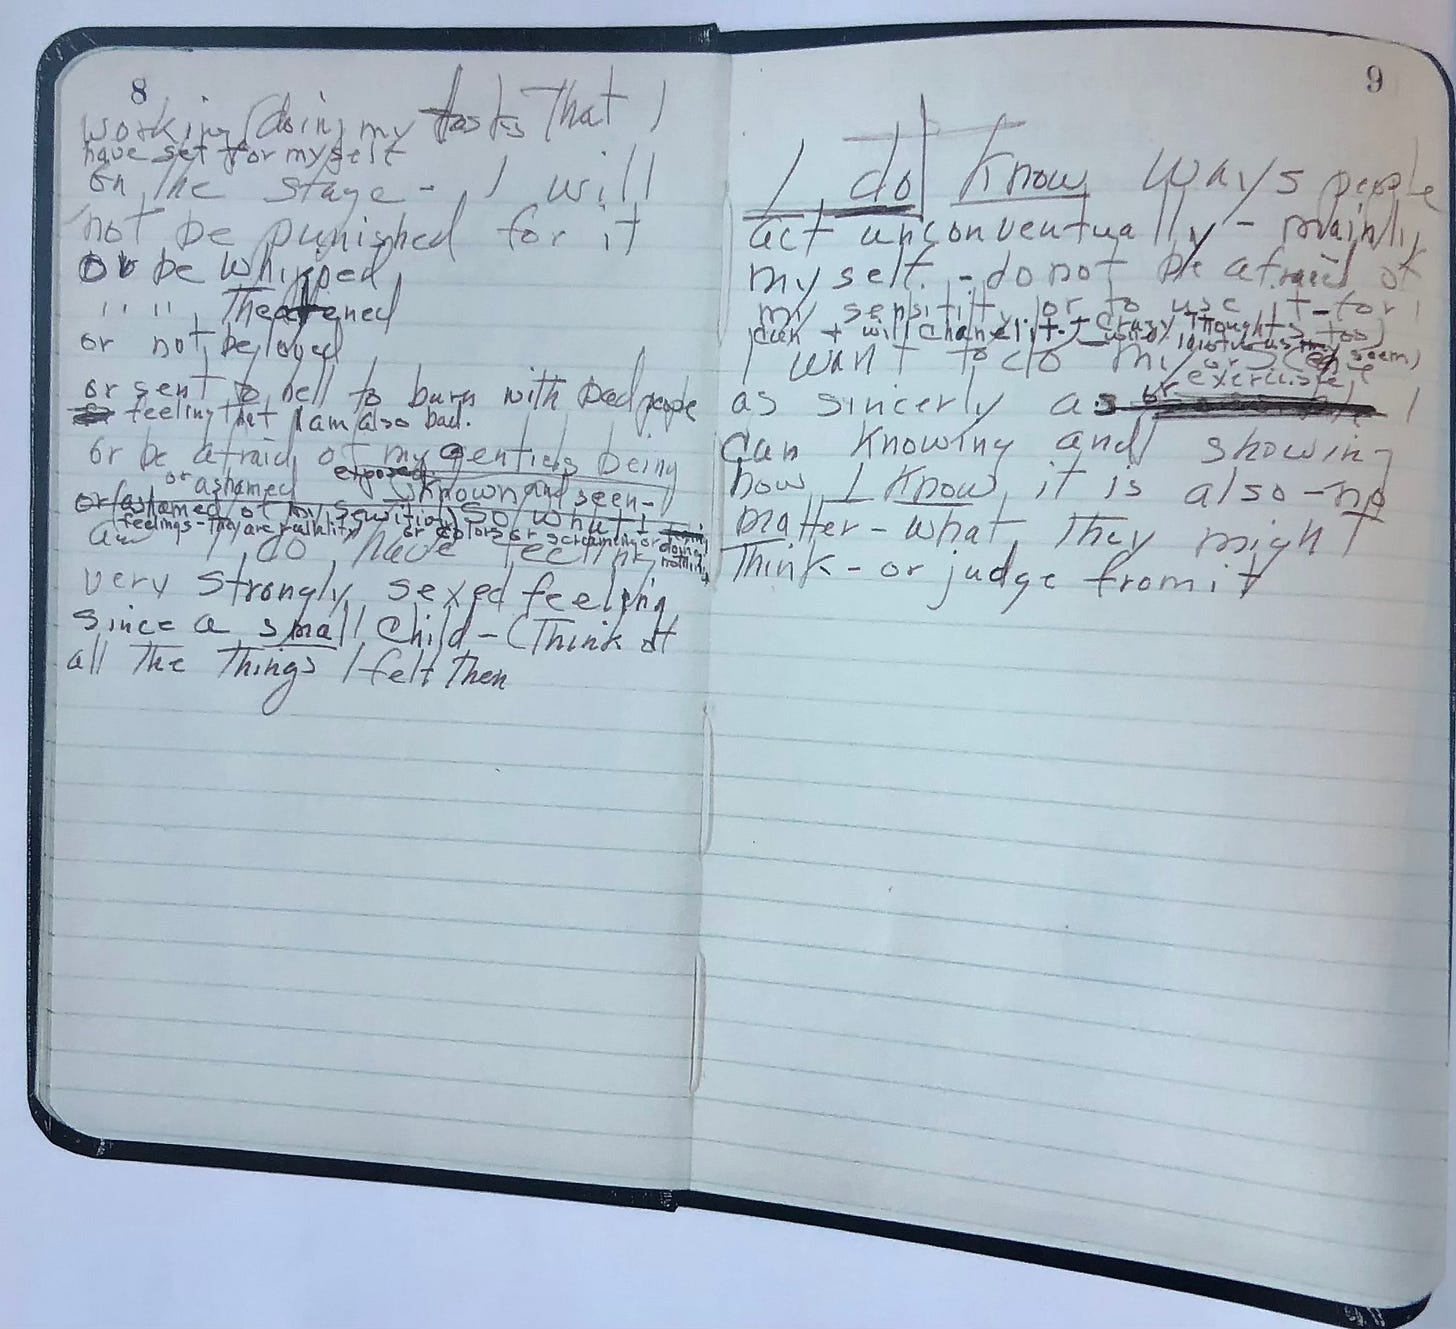 8
working (doing my tasks that I
have set for myself
on the stage - I will
not be punished for it
or be whipped
" " " Threatened
or not be loved
or sent to hell to burn with bad people
feeling that I am also bad.
or be afraid of my genitals being
or ashamed exposed known and seen -
or ashamed of my so what
feelings - they are reality or colors or screaming or doing nothing
I do have feeling
very strongly sexed feeling
since a small child - (Think of
all the things I felt then
9
I do know ways people
act unconventually - mainly
myself. - do not be afraid of
my sensitity or to use it - for I
can & will channel it + crazy thoughts too)
I want to do my or scene (seem)
or exercise/s
as sincerly as I
can knowing and showing
how I know it is also - no
matter - what they might
think - or judge from it